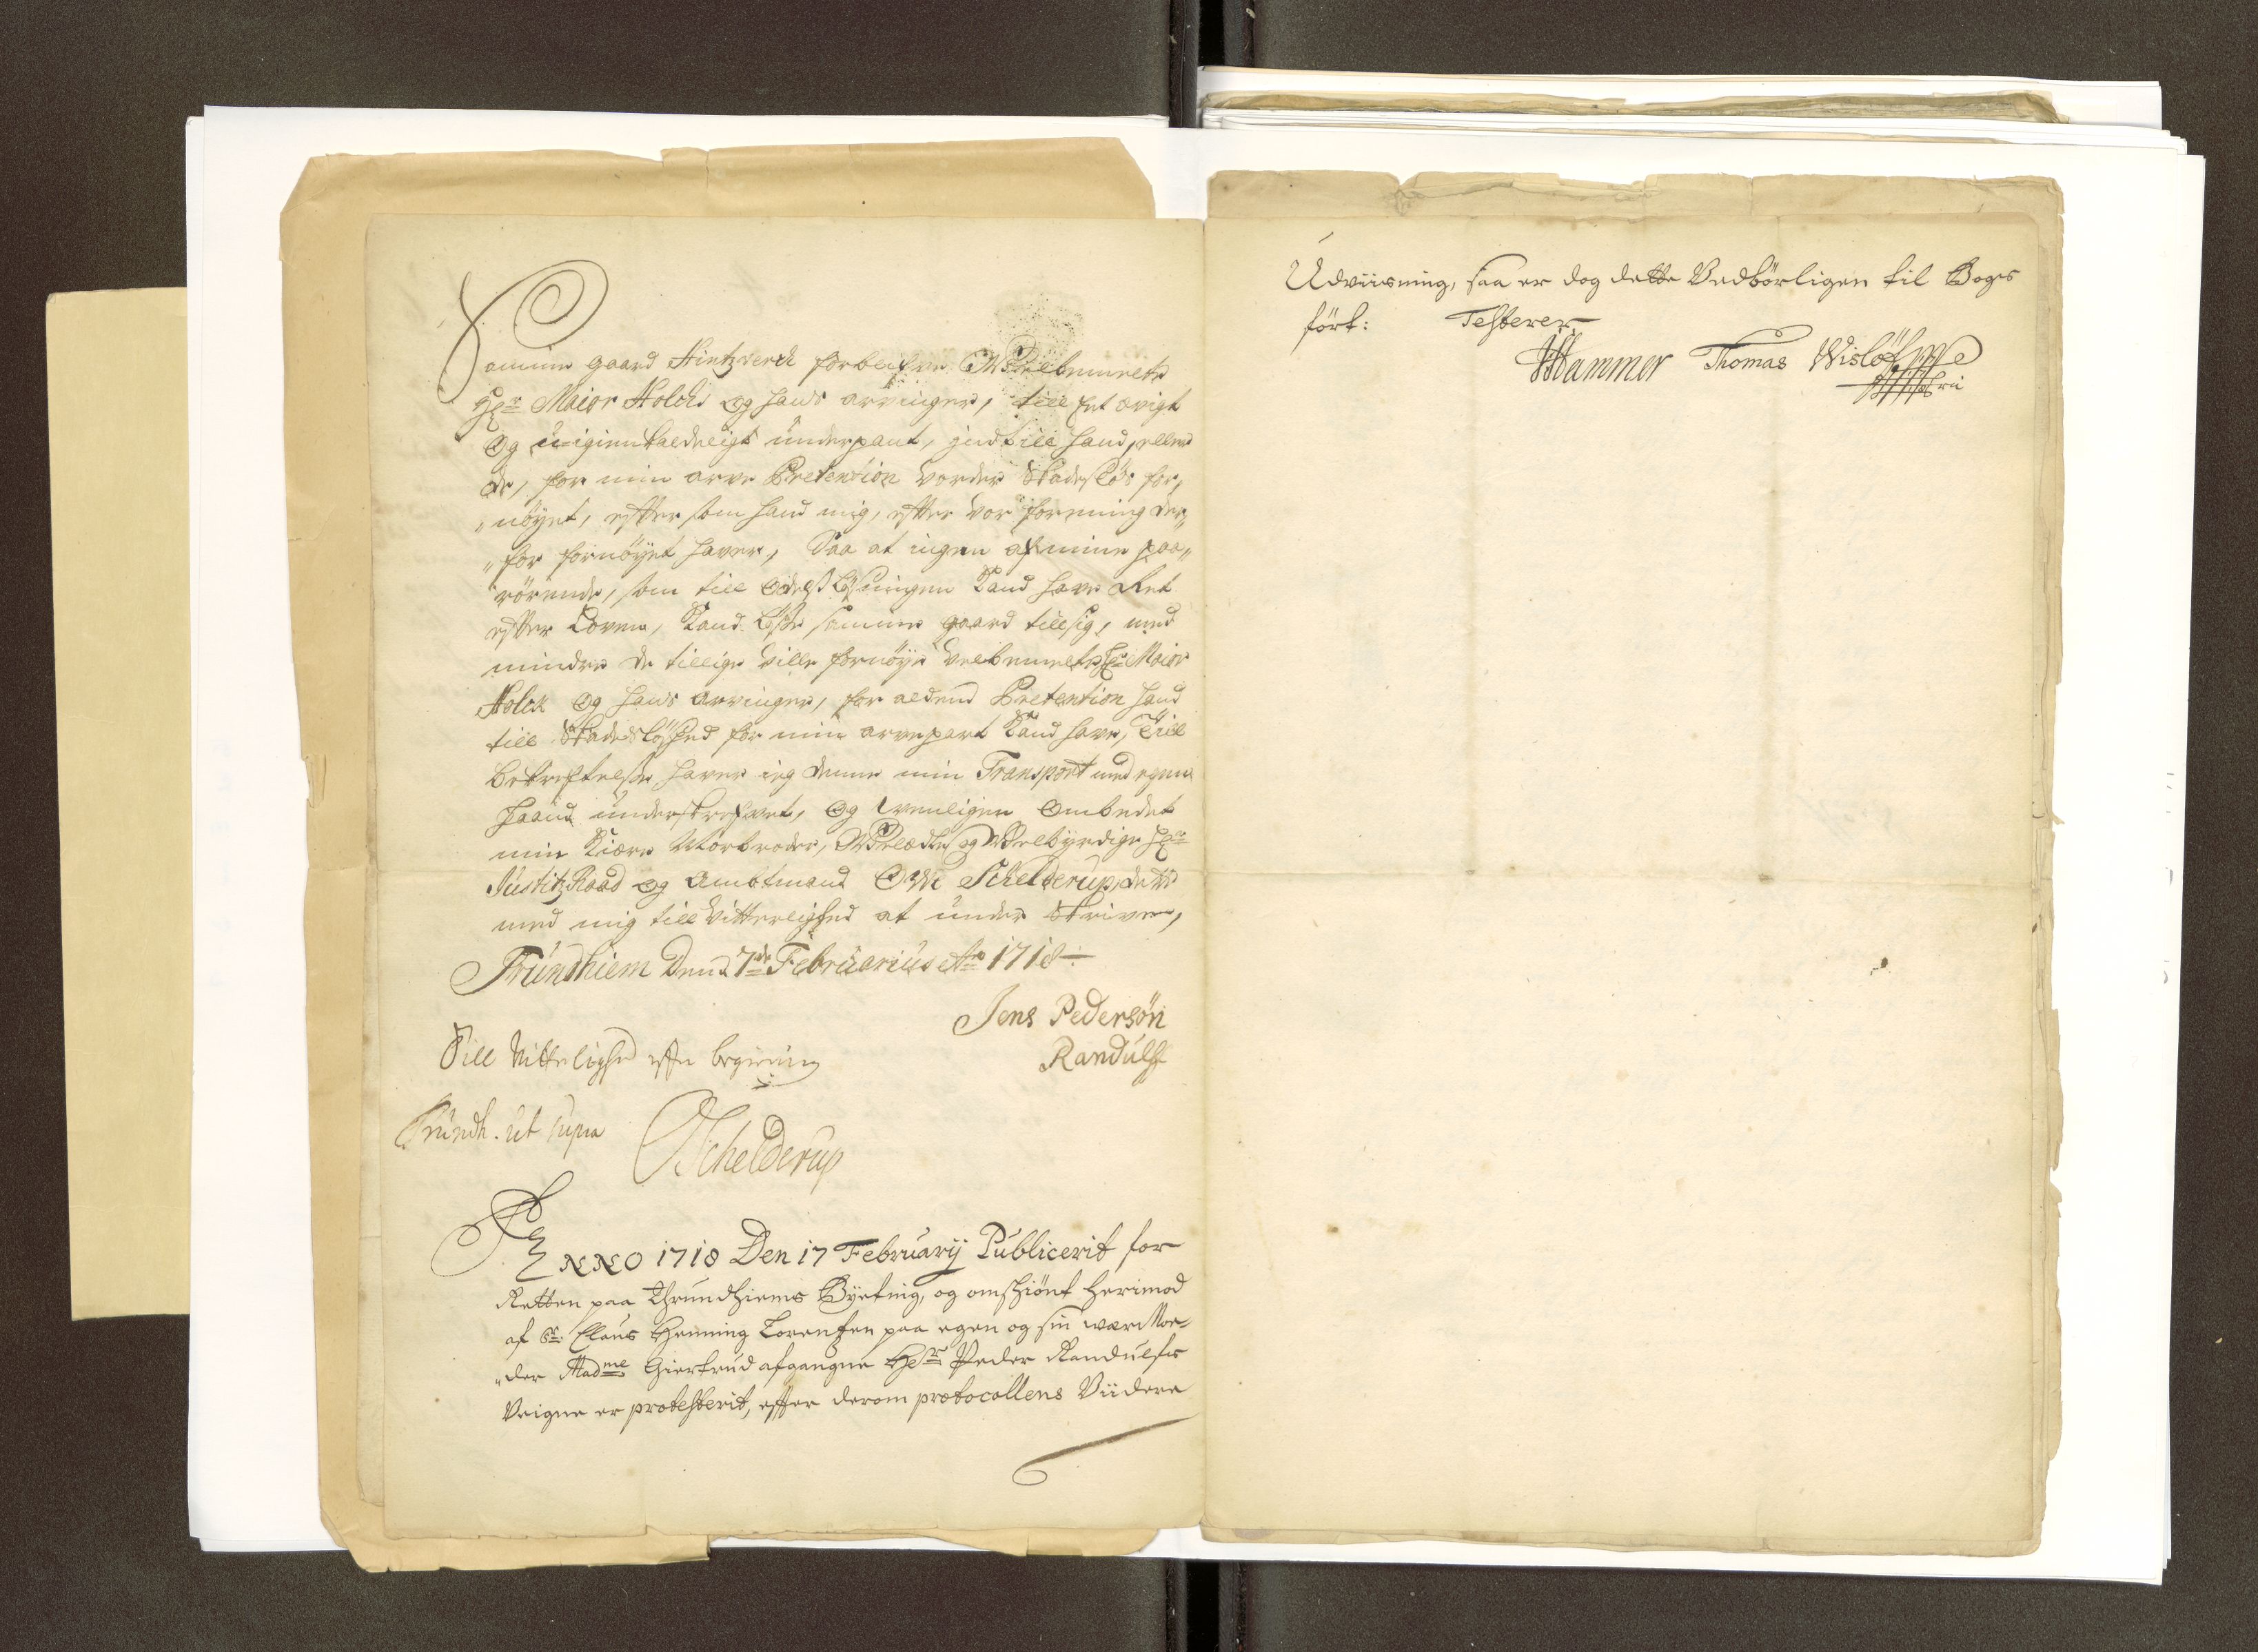 Samme gaard Hintzverch forbliefver Velbemelte
Hr Maior Holch og hans arvinger, till et ævigt
og u-igienkaldeligt underpant, indtill hand, eller
de, for min arve Pretention vorder Skadesløs for,
„nøyet, efftersom hand mig, effter vor foreening der„
„for fornøyet haver, Saa at ingen af mine paa„
rørende, som till Odelsløsningen kand have Ret
effter Loven, kand løse samme gaard till sig, med
mindre de tillige ville fornøye Velbemelte Hr Maior
Holck og hans arvinger, for aldend Pretention hand
till Skadesløshed for min arvepart kand have, Till
bekrefftelse haver ieg denne min Transport med egen
haand underskrefvet, og venligen ombedet
min kiære Morbroder, Velædle og Velbyrdige Hr
Justitz Raad og Ambtmand Ove Schelderup, dette
med mig till Vitterlighed at under Skrive,
Trundhiem Dend 7de Februarius Ao 1718
Jens Pedersøn
Randulf
Till Vitterlighed effter begiering
Trundh. ut supra
OSchelderup
ANNO 1718 Den 17 February Publicerit for
Retten paa Thrundhiems Byeting, og omskiönt herimod
af Sr. Claus Henning Lorentzen paa egen og sin wærMoe„
„der Madme Giertrud afgangne Hr Peder Randulfs
Veigne er protesterit, effter derom protocollens Viidere
Udviisning, saa er dog dette Vedbörligen til Bogs
fört: Testerer
Hammer Thomas Wislöf